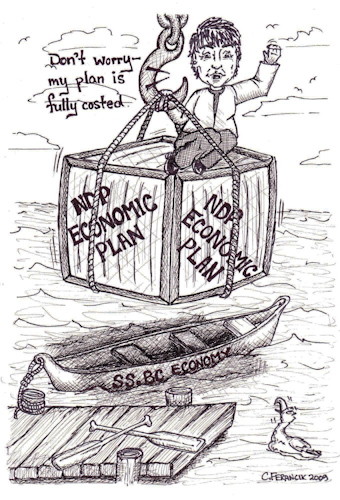 Don't worry—
my plan is
fully costed.
NDP
ECONOMIC
PLAN
NDP
ECONOMIC
PLAN
SS. BC ECONOMY
C. FERANCIK 2009